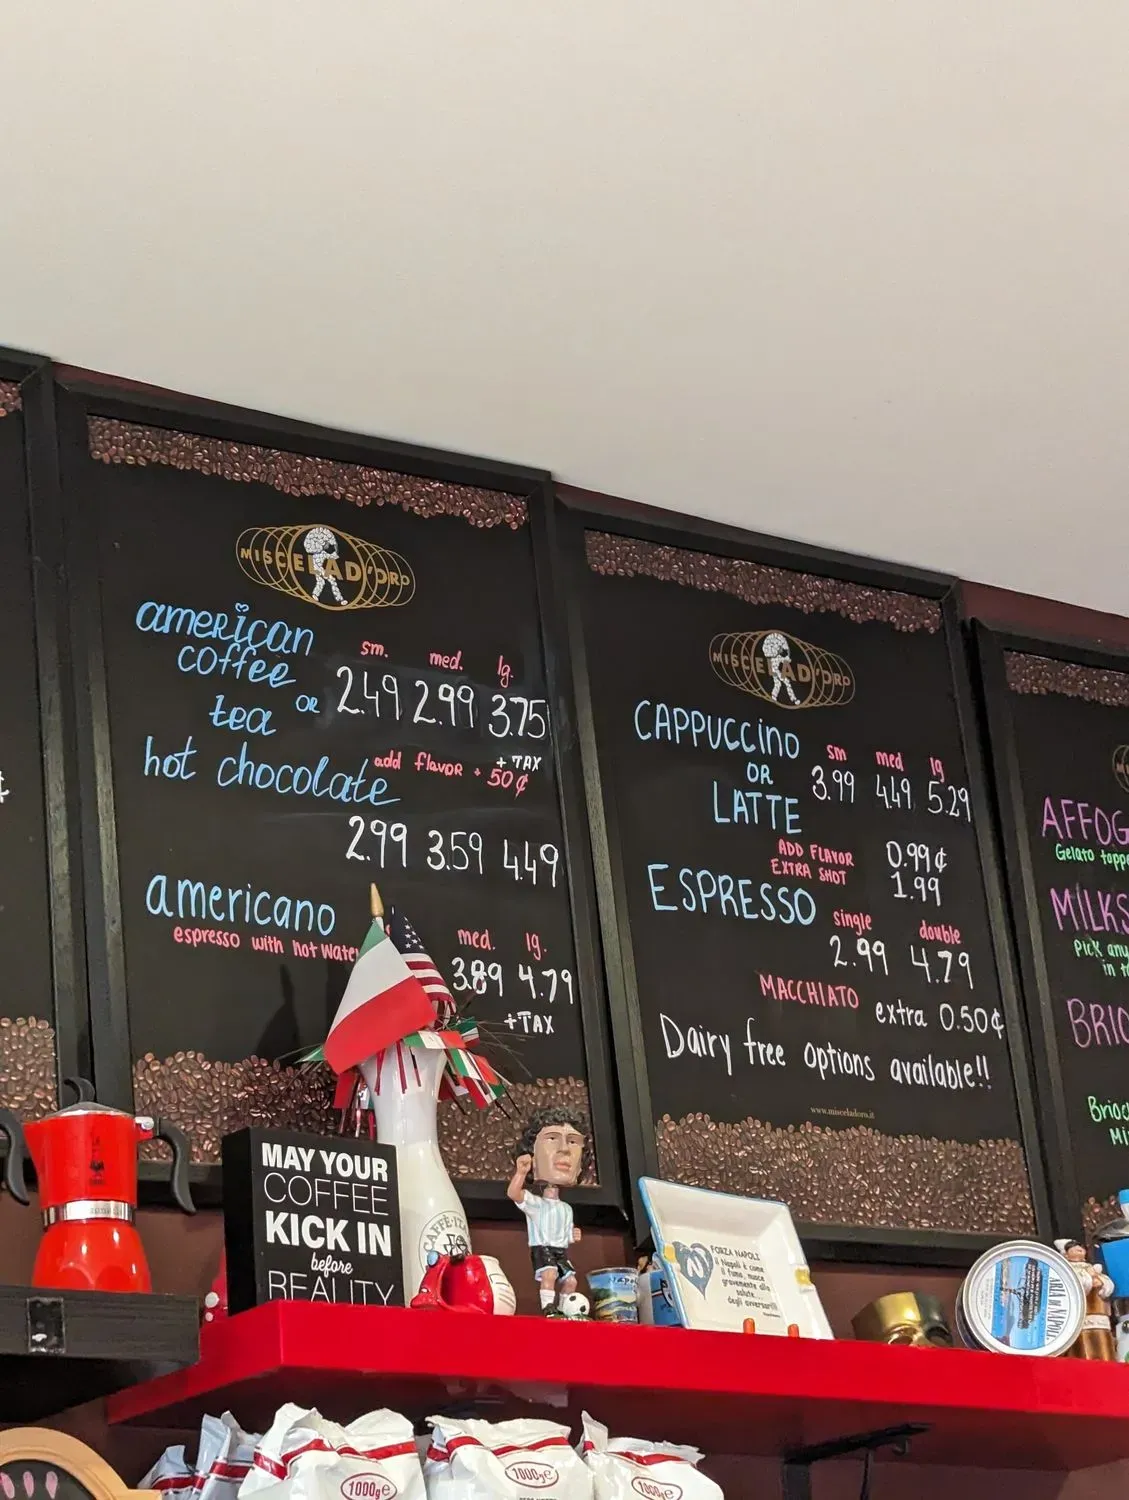 MISCELA D'ORO
american
coffee
or
tea
sm. med. lg.
2.49 2.99 3.75
+ TAX
add flavor • 50¢
hot chocolate
2.99 3.59 4.49
americano
espresso with hot water
med. lg.
3.89 4.79
+TAX
MISCELA D'ORO
CAPPUCCINO
OR
LATTE
sm med lg
3.99 4.49 5.29
ADD FLAVOR 0.99¢
EXTRA SHOT 1.99
ESPRESSO
single double
2.99 4.79
MACCHIATO extra 0.50¢
Dairy free options available!!
www.misceladoro.it
AFFOG
Gelato toppe
MILKS
Pick any
in
BRIO
Brioc
Mi
MAY YOUR
COFFEE
KICK IN
before
REALITY
CAFFÈ ITA
N
FORZA NAPOLI
il Napoli è come
il fumo, nuoce
gravemente alla
salute...
degli avversari!!
ARIA DI NAPOLI
1000g e
1000g e
1000g e